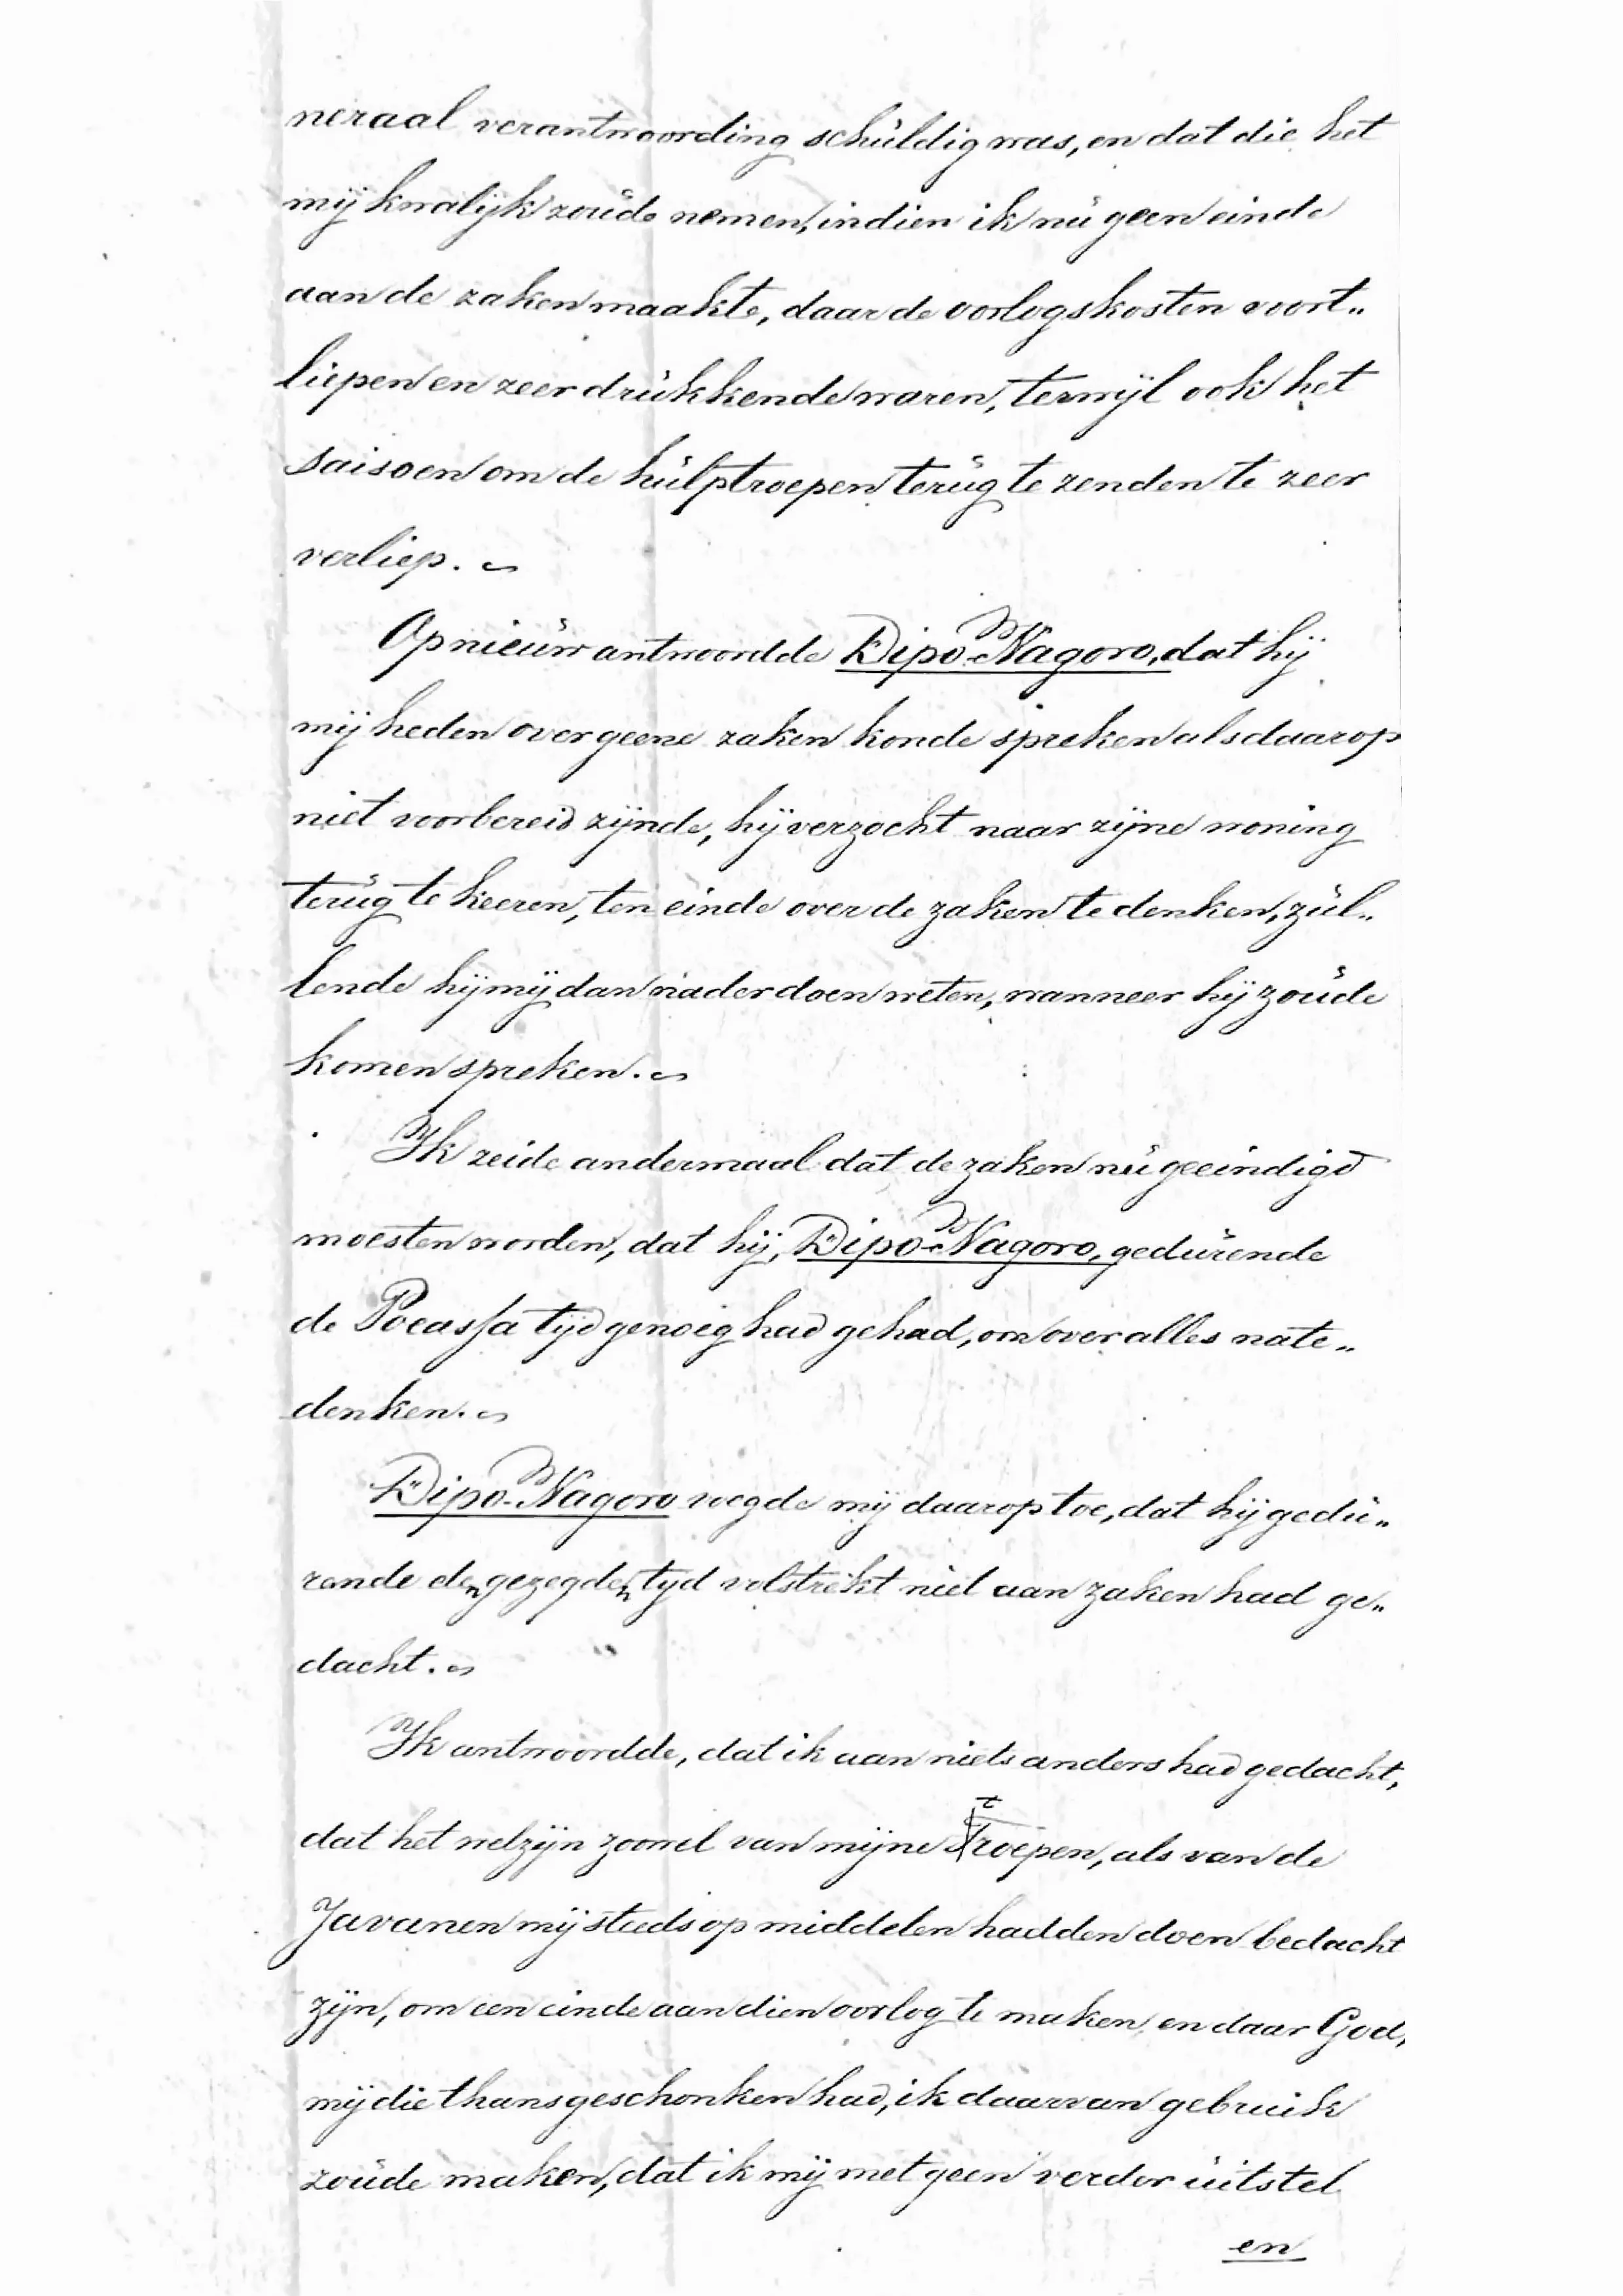 neraal verantwoording schuldig was, en dat die het
mij kwalijk zoude nemen, indien ik nu geen einde
aan de zaken maakte, daar de oorlogskosten voort„
liepen en zeer drukkende waren, terwijl ook het
saisoen om de hulptroepen terug te zenden te zeer
verliep.
Opnieuw antwoordde Dipo-Nagoro, dat hij
mij heden over geene zaken konde spreken als daarop
niet voorbereid zijnde, hij verzocht naar zijne woning
terug te keeren, ten einde over de zaken te denken, zul„
lende hij mij dan nader doen weten, wanneer hij zoude
komen spreken.
Ik zeide andermaal dat de zaken nu geeindigd
moesten worden, dat hij, Dipo-Nagoro, gedurende
de Poeassa tijd genoeg had gehad, om over alles nate„
denken.
Dipo-Nagoro voegde mij daarop toe, dat hij gedu„
rende den gezegden tijd volstrekt niet aan zaken had ge„
dacht.
Ik antwoordde, dat ik aan niets anders had gedacht,
dat het welzijn zoowel van mijne troepen, als van de
Javanen mij steeds op middelen hadden doen bedacht
zijn, om een einde aan dien oorlog te maken, en daar God,
mij die thans geschonken had, ik daarvan gebruik
zoude maken, dat ik mij met geen verder uitstel
en